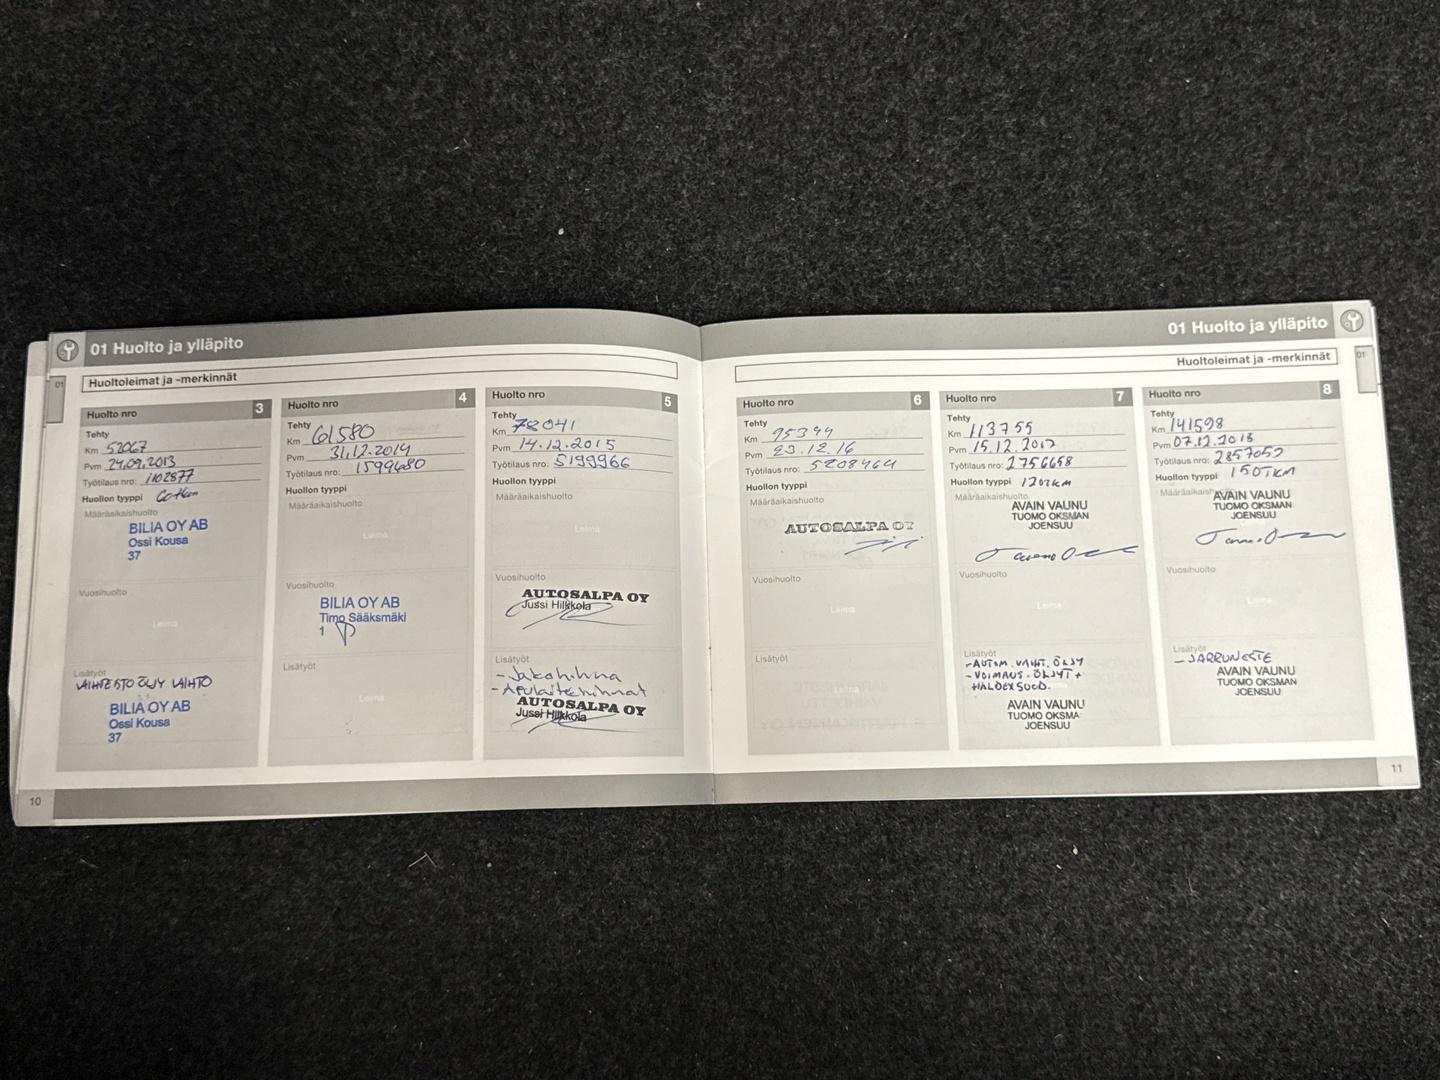 01 Huolto ja ylläpito
01
Huoltoleimat ja -merkinnät
Huolto nro 3
Tehty
Km 52067
Pvm 24.09.2013
Työtilaus nro: 1102877
Huollon tyyppi
Määräaikaishuolto
BILIA OY AB
Ossi Kousa
37
Vuosihuolto
Leima
Lisätyöt
VAIHTEISTO ÖLJY VAIHTO
BILIA OY AB
Ossi Kousa
37
Huolto nro 4
Tehty
Km 61580
Pvm 31.12.2014
Työtilaus nro: 1599480
Huollon tyyppi
Määräaikaishuolto
Leima
Vuosihuolto
BILIA OY AB
Timo Sääksmäki
1
Lisätyöt
Leima
Huolto nro 5
Tehty
Km 78041
Pvm 14.12.2015
Työtilaus nro: 5199966
Huollon tyyppi
Määräaikaishuolto
Leima
Vuosihuolto
AUTOSALPA OY
Jussi Hilkkola
Lisätyöt
- Jakohihna
- Apulaitehihnat
AUTOSALPA OY
Jussi Hilkkola
10
01 Huolto ja ylläpito
01
Huoltoleimat ja -merkinnät
Huolto nro 6
Tehty
Km 95344
Pvm 23.12.16
Työtilaus nro: 5208464
Huollon tyyppi
Määräaikaishuolto
AUTOSALPA OY
Vuosihuolto
Leima
Lisätyöt
Leima
Huolto nro 7
Tehty
Km 113755
Pvm 15.12.2017
Työtilaus nro: 2756658
Huollon tyyppi 120TKM
Määräaikaishuolto
AVAIN VAUNU
TUOMO OKSMAN
JOENSUU
Vuosihuolto
Leima
Lisätyöt
- AUTOM. VAIHT. ÖLJY
- VOIMANS. ÖLJYT +
HALDEX SUOD.
AVAIN VAUNU
TUOMO OKSMA
JOENSUU
Huolto nro 8
Tehty
Km 141598
Pvm 07.12.2018
Työtilaus nro: 2857052
Huollon tyyppi 150TKM
Määräaikaishuolto
AVAIN VAUNU
TUOMO OKSMAN
JOENSUU
Vuosihuolto
Leima
Lisätyöt
- JARRUNESTE
AVAIN VAUNU
TUOMO OKSMAN
JOENSUU
11